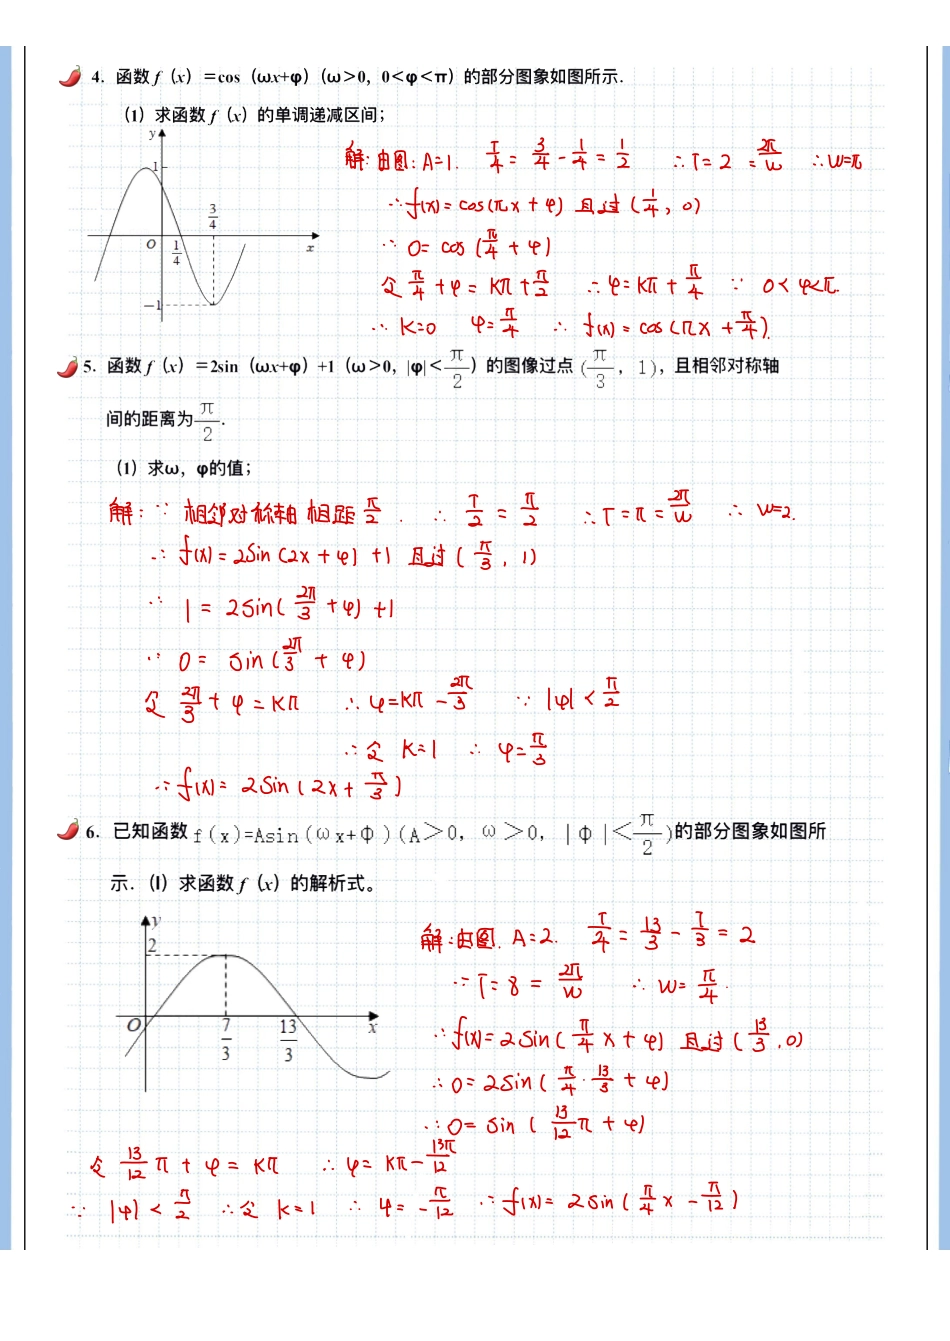 4. 函数 f（x）＝cos（ωx+φ）(ω＞0，0＜φ＜π）的部分图象如图所示．
（1）求函数 f（x）的单调递减区间；
y
1
3/4
O
1/4
x
－1
解：由图：A=1. T/4 = 3/4 - 1/4 = 1/2 ∴T=2 = 2π/W ∴W=π
∴f(x)=cos(πx+φ) 且过(1/4, 0)
∴ 0= cos(π/4+φ)
令 π/4+φ= Kπ+π/2 ∴φ=Kπ+π/4 ∵ 0<φ<π.
∴ K=0 φ=π/4 ∴ f(x)=cos(πx+π/4).
5. 函数 f（x）＝2sin（ωx+φ）+1（ω＞0，|φ|＜π/2）的图像过点(π/3，1)，且相邻对称轴
间的距离为π/2．
（1）求ω，φ的值；
解：∵ 相邻对称轴相距π/2. ∴ T/2 = π/2 ∴T=π=2π/W ∴ W=2.
∴ f(x)=2Sin(2x+φ)+1 且过(π/3, 1)
∵ 1 = 2sin(2π/3+φ)+1
∵ 0= sin(2π/3+φ)
令 2π/3+φ=Kπ ∴φ=Kπ-2π/3 ∵ |φ|<π/2
∴令 K=1 ∴ φ=π/3
∴f(x)= 2Sin(2x+π/3)
6. 已知函数f(x)=Asin(ωx+φ)(A＞0，ω＞0，|φ|＜π/2)的部分图象如图所
示．（Ⅰ）求函数 f（x）的解析式。
y
2
O
7/3
13/3
x
解：由图. A=2. T/4 = 13/3 - 7/3 = 2
∴T=8 = 2π/W ∴ W=π/4.
∴f(x)=2Sin(π/4x+φ) 且过(13/3, 0)
∴0=2Sin(π/4·13/3+φ)
∴0= Sin(13/12π+φ)
令 13/12π+φ=Kπ ∴φ= Kπ-13π/12
∵ |φ|<π/2 ∴令 K=1 ∴ φ=-π/12 ∴f(x)= 2Sin(π/4x-π/12)